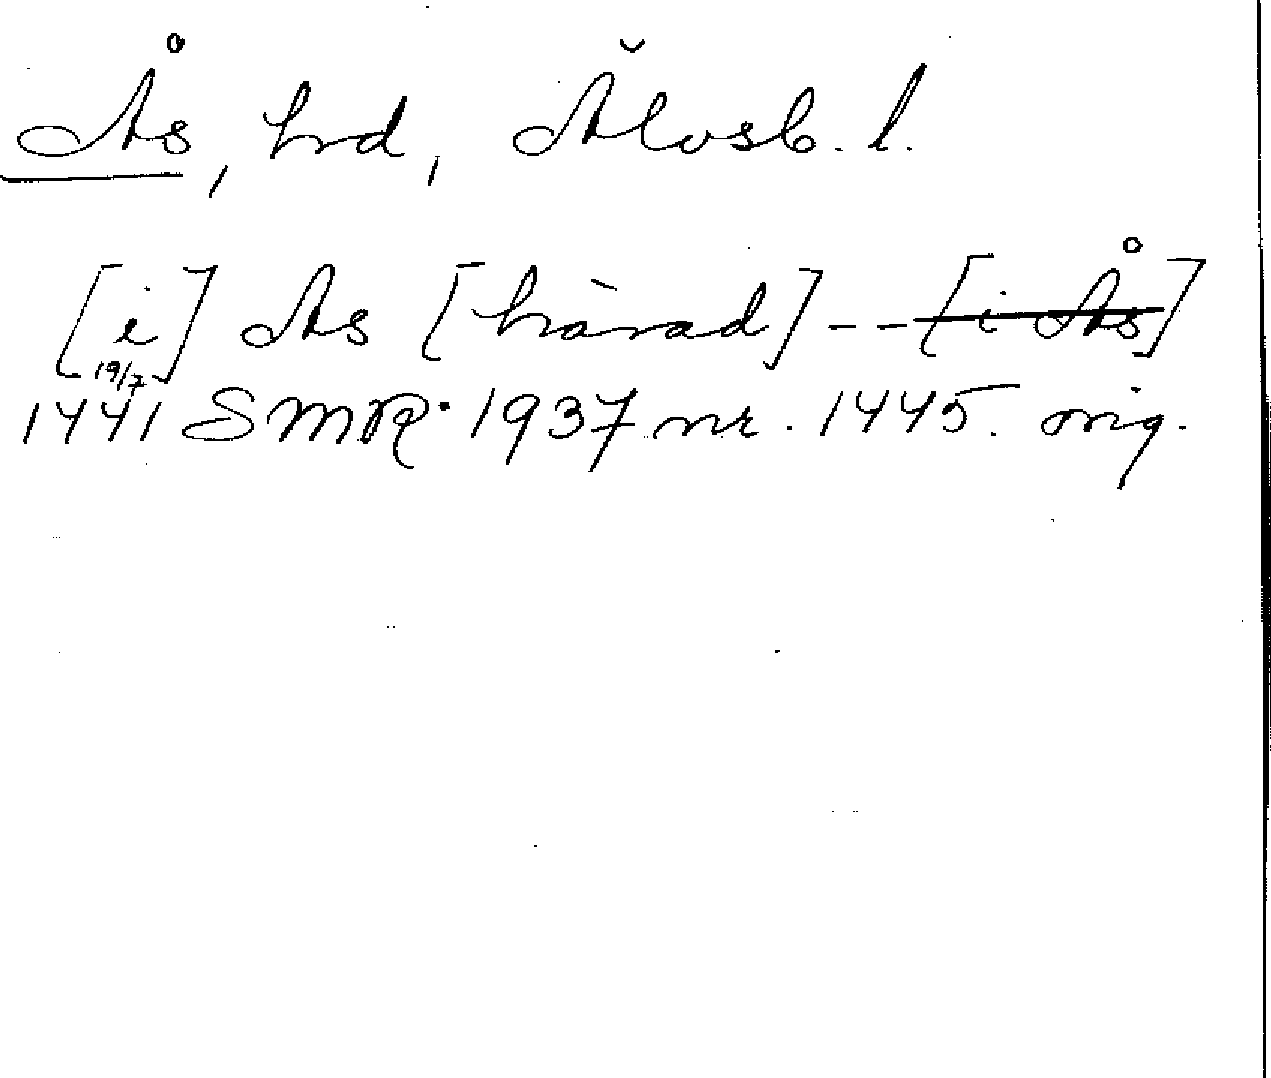 Ås, hrd, Älvsb. l.
[i] As [härad] -- [i Ås]
19/7
1441 SMR 1937 nr. 1445. orig.